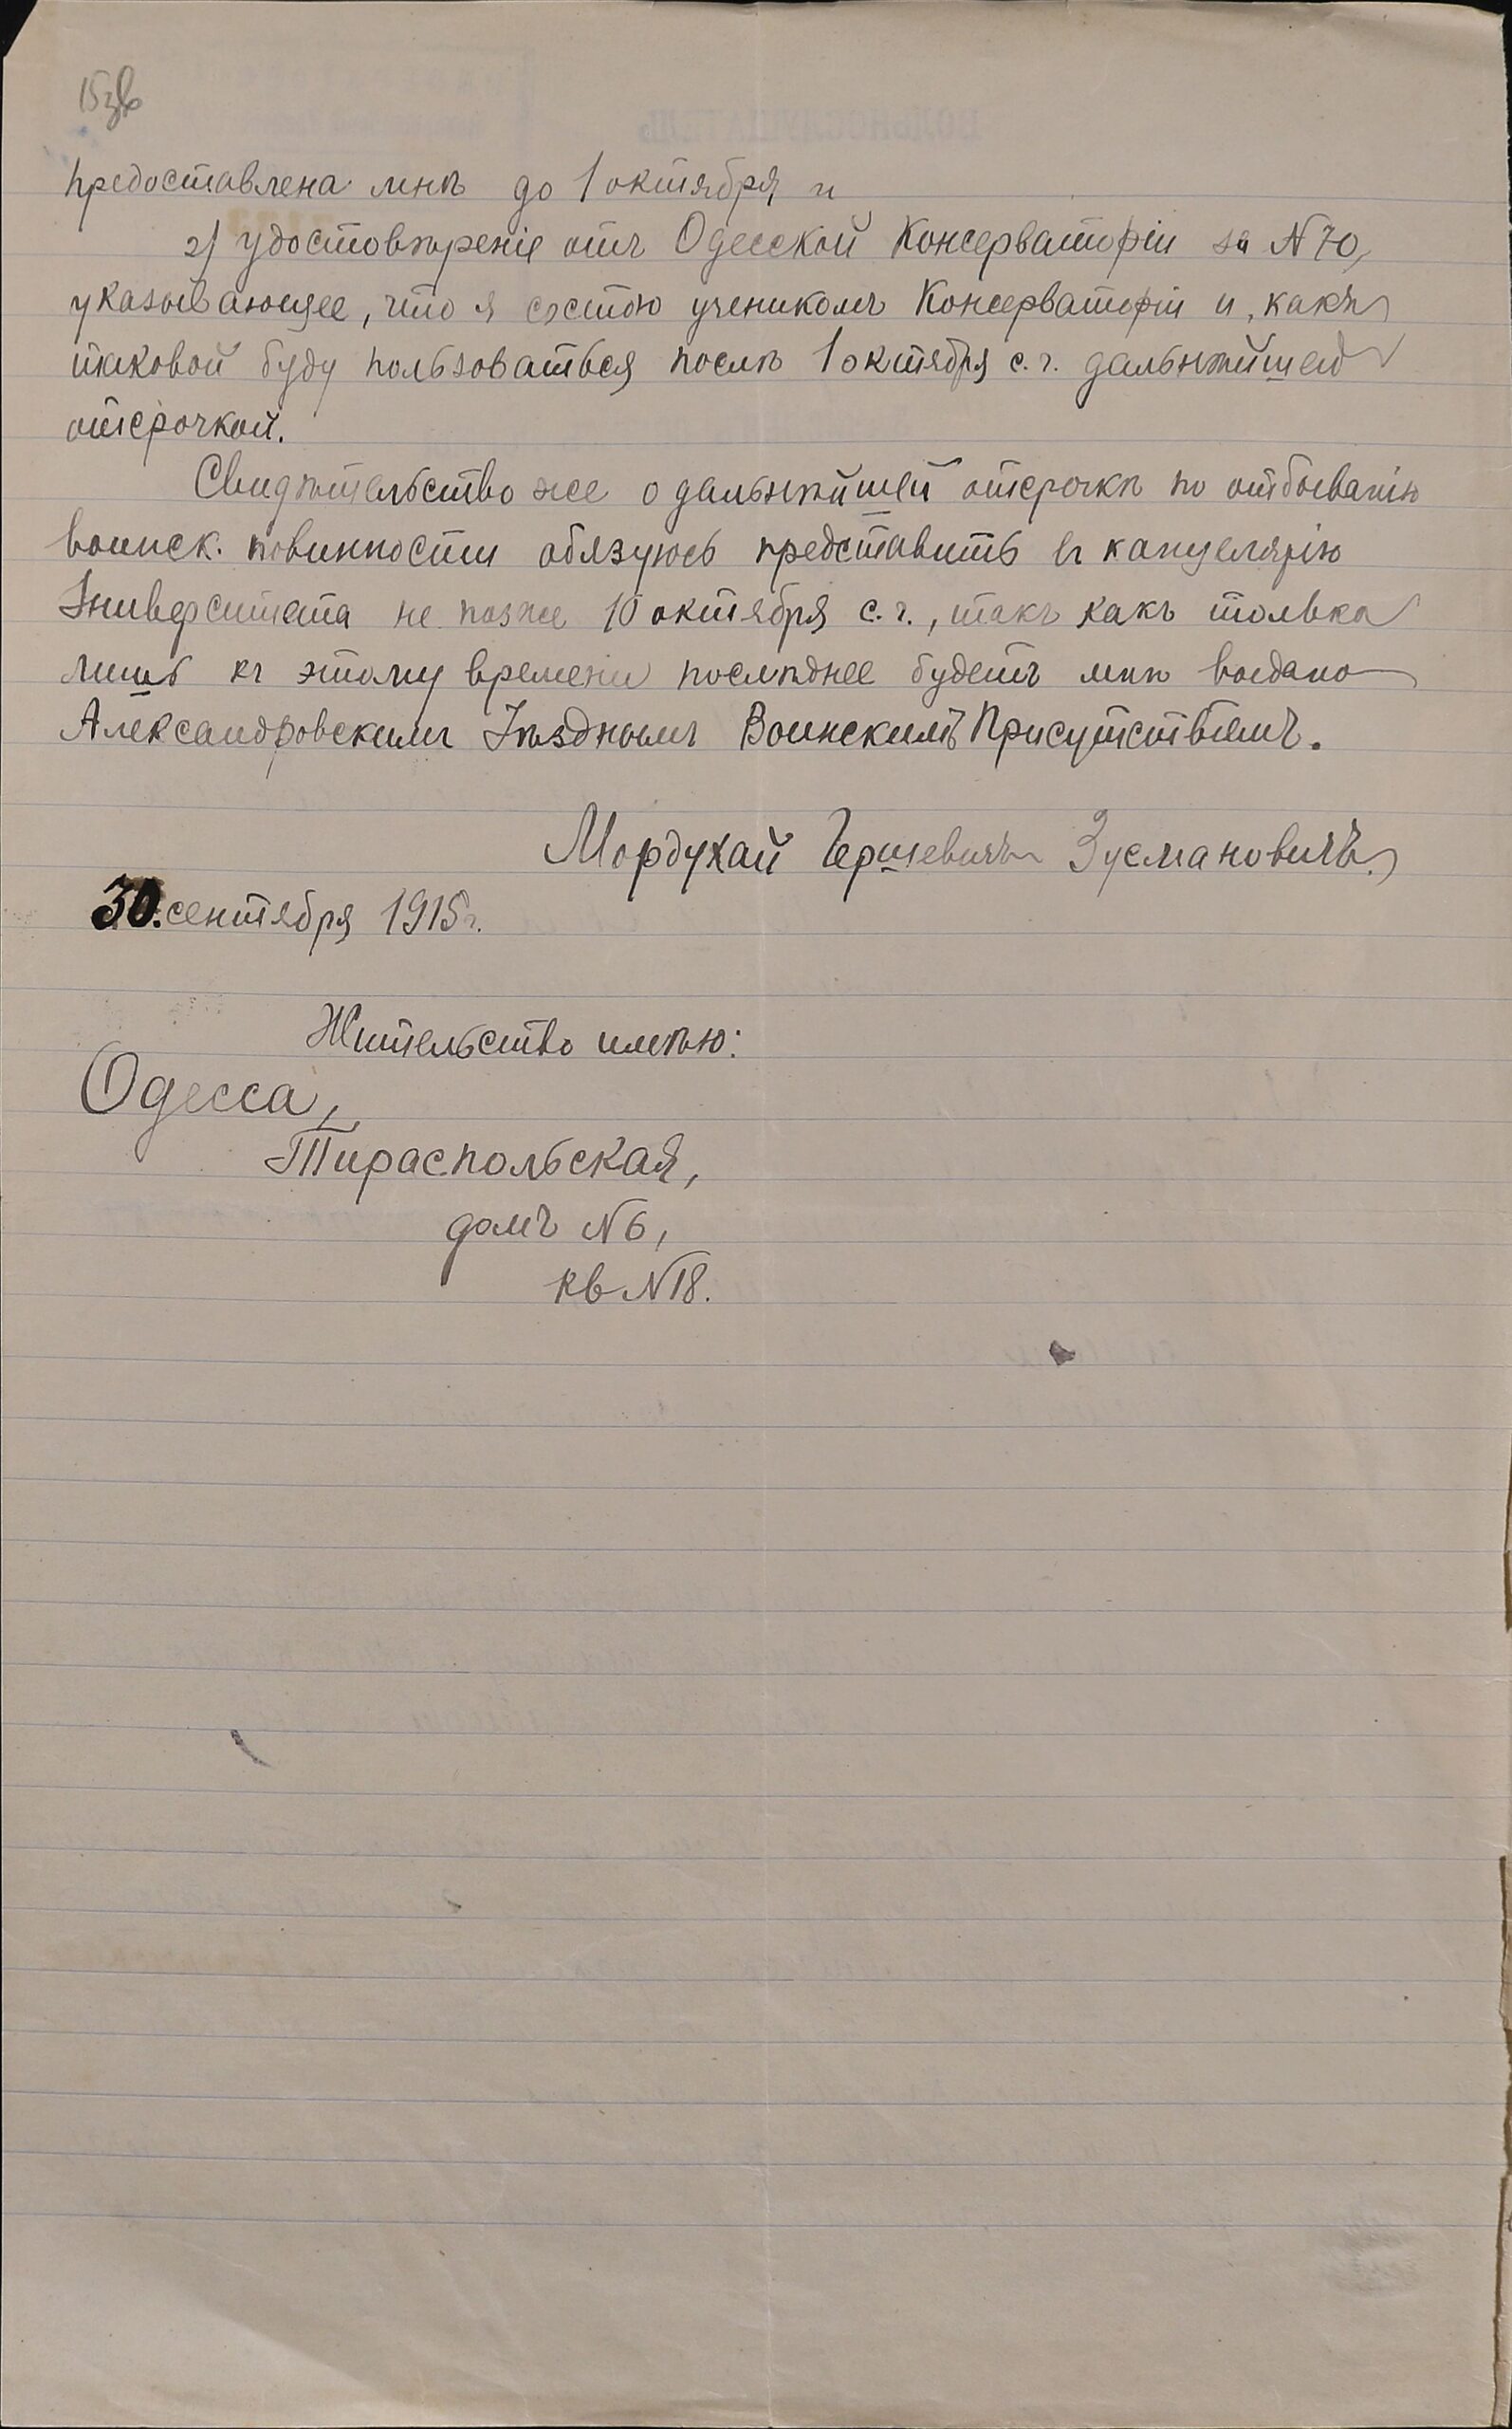 15 зв
предоставлена мнѣ до 1 октября и
2) удостовѣреніе отъ Одесской Консерваторіи за N 70,
указывающее, что я состою ученикомъ Консерваторіи и, какъ
таковой буду пользоваться послѣ 1 октября с. г. дальнѣйшей
отсрочкой.
Свидѣтельство же о дальнѣйшей отсрочкѣ по отбыванію
воинск. повинности обязуюсь представить въ канцелярію
Университета не позже 10 октября с. г., такъ какъ только
лишь къ этому времени послѣднее будетъ мнѣ выдано
Александровскимъ Уѣзднымъ Воинскимъ Присутствіемъ.
Мордухай Гершевичъ Зусмановичъ.
30. сентября 1915 г.
Жительство имѣю:
Одесса,
Тираспольская,
домъ N 6,
кв N 18.